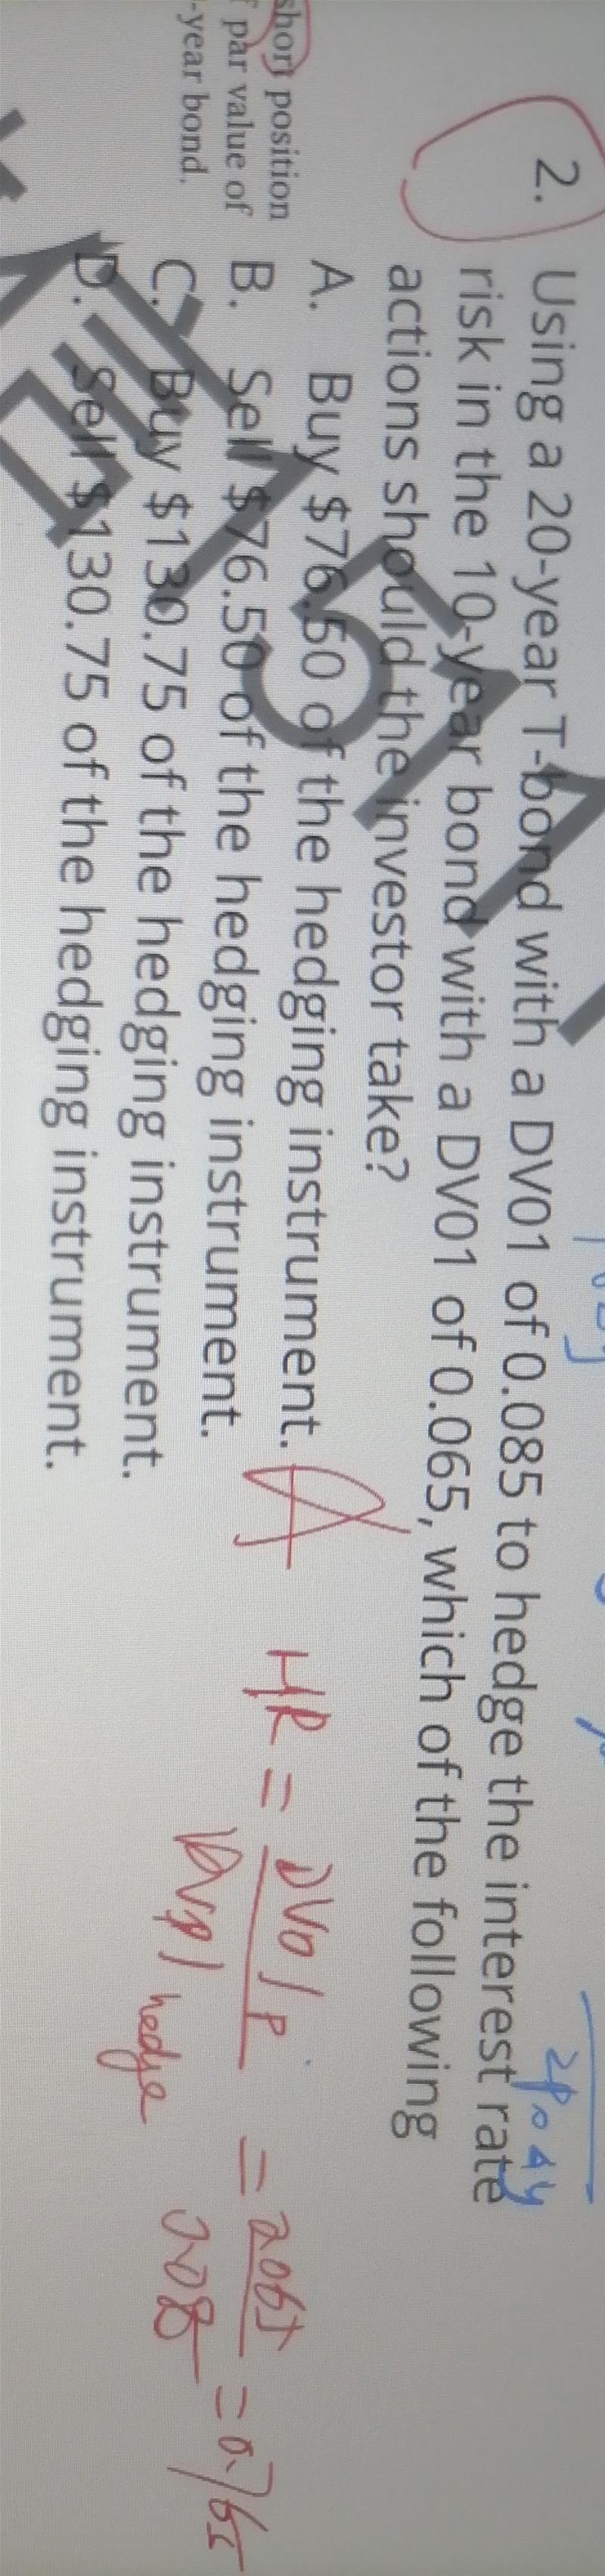 short position
par value of
-year bond.
2. Using a 20-year T-bond with a DV01 of 0.085 to hedge the interest rate
risk in the 10-year bond with a DV01 of 0.065, which of the following
actions should the investor take?
A. Buy $76.50 of the hedging instrument.
B. Sell $76.50 of the hedging instrument.
C. Buy $130.75 of the hedging instrument.
D. Sell $130.75 of the hedging instrument.
A
HR = DV01 P
DV01 hedge
= 0.065
= 0.765